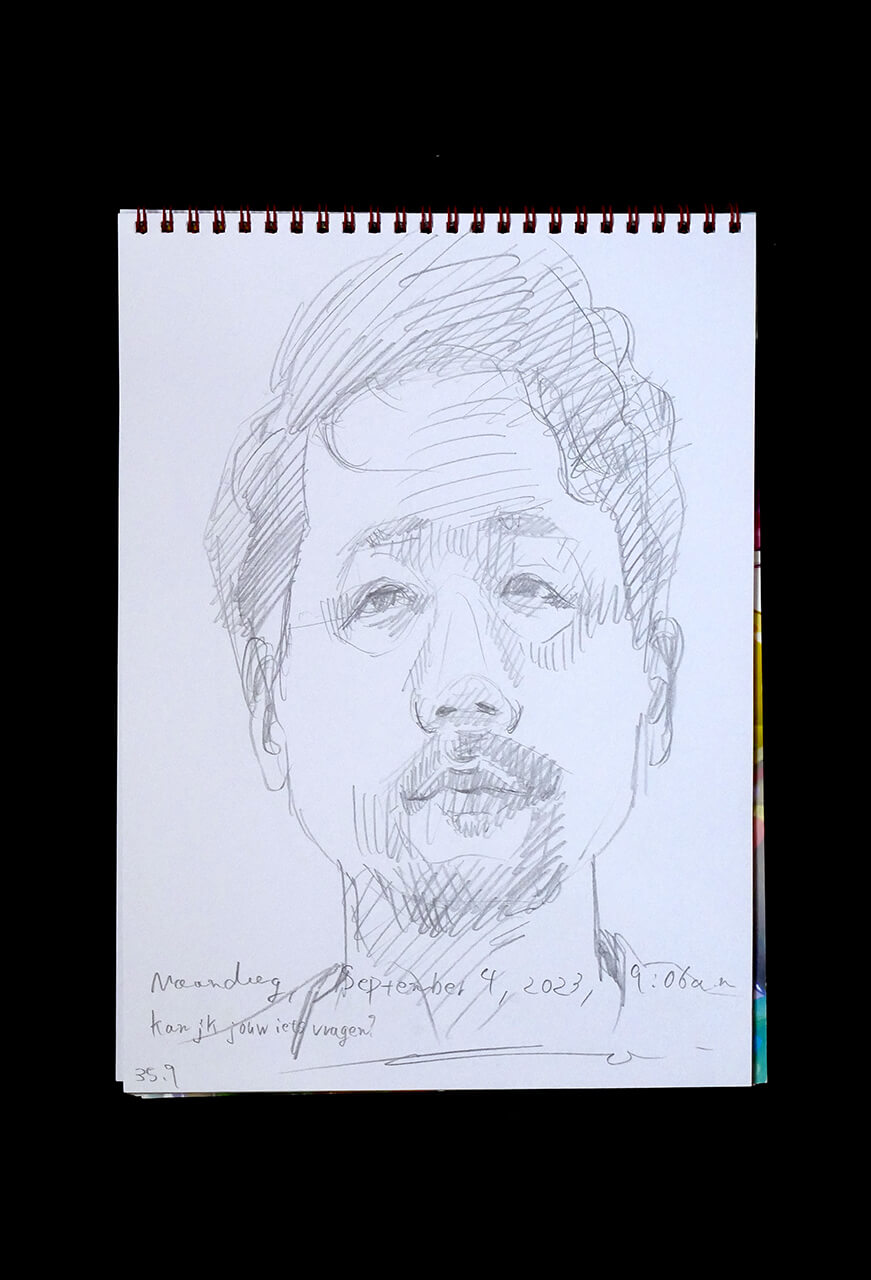 Maandag, September 4, 2023, 9:06am
kan jk jouw iets vragen?
35.9